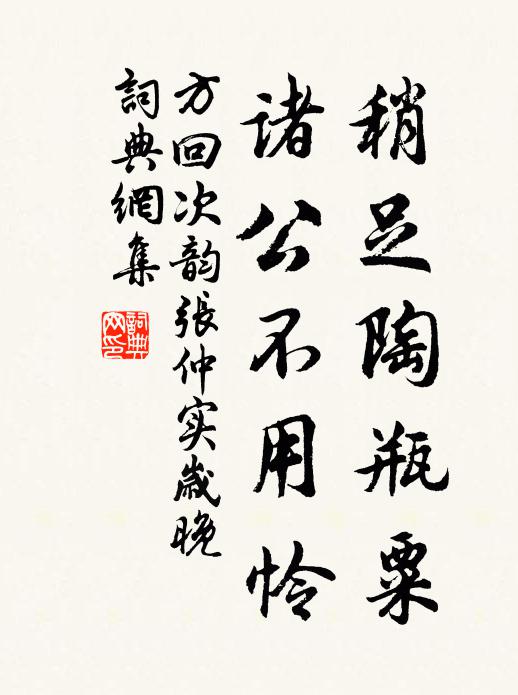 稍足陶瓶粟
诸公不用怜
方回次韵張仲实歲晚
詞典網集
詞典網印